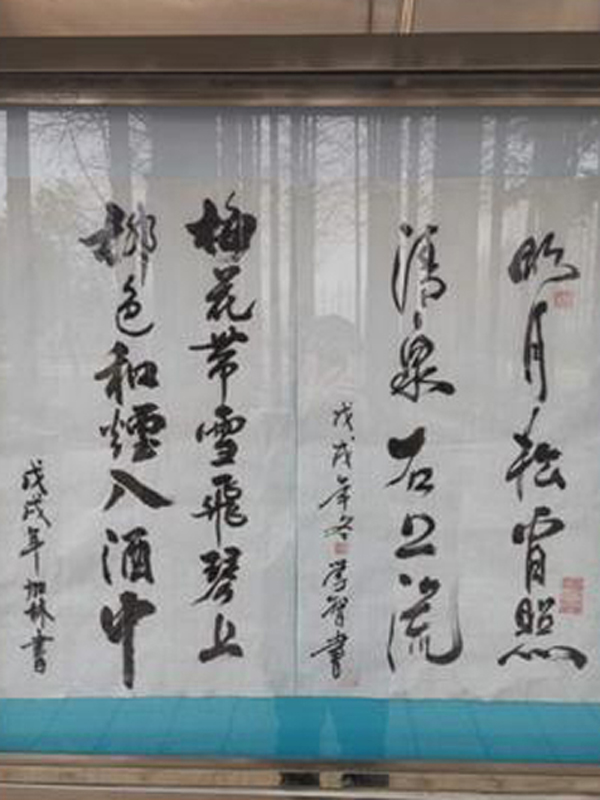 明月松間照
清泉石上流
戊戌年冬 学智書
梅花带雪飛琴上
柳色和煙入酒中
戊戌年 林書